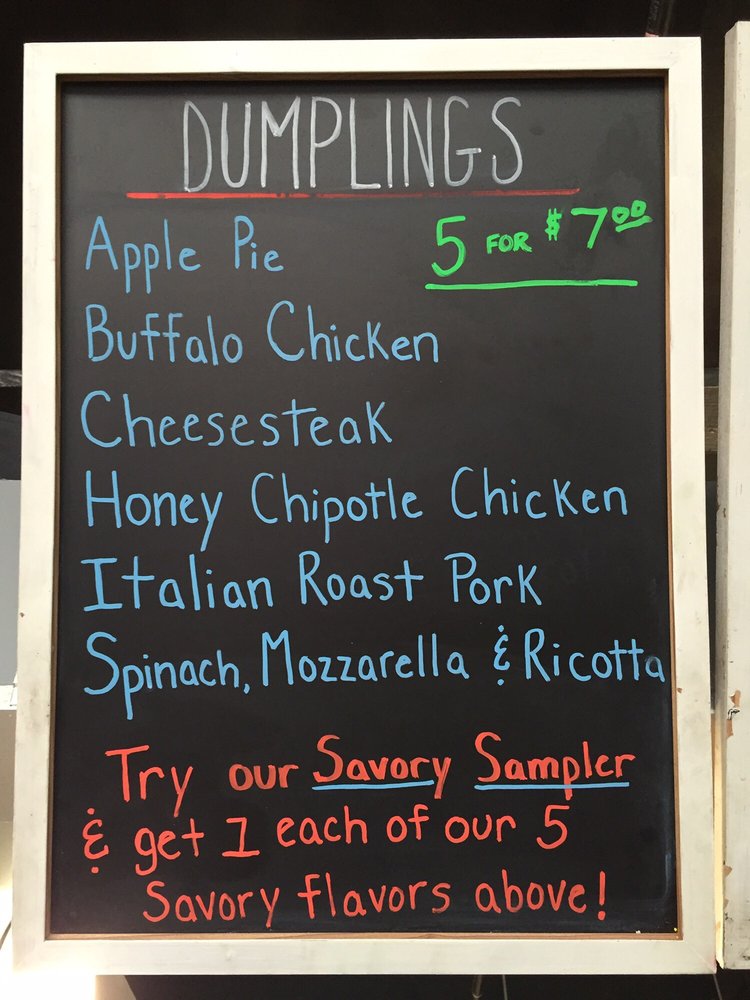 DUMPLINGS
Apple Pie
5 FOR $7.00
Buffalo Chicken
Cheesesteak
Honey Chipotle Chicken
Italian Roast Pork
Spinach, Mozzarella & Ricotta
Try our Savory Sampler
& get 1 each of our 5
Savory flavors above!